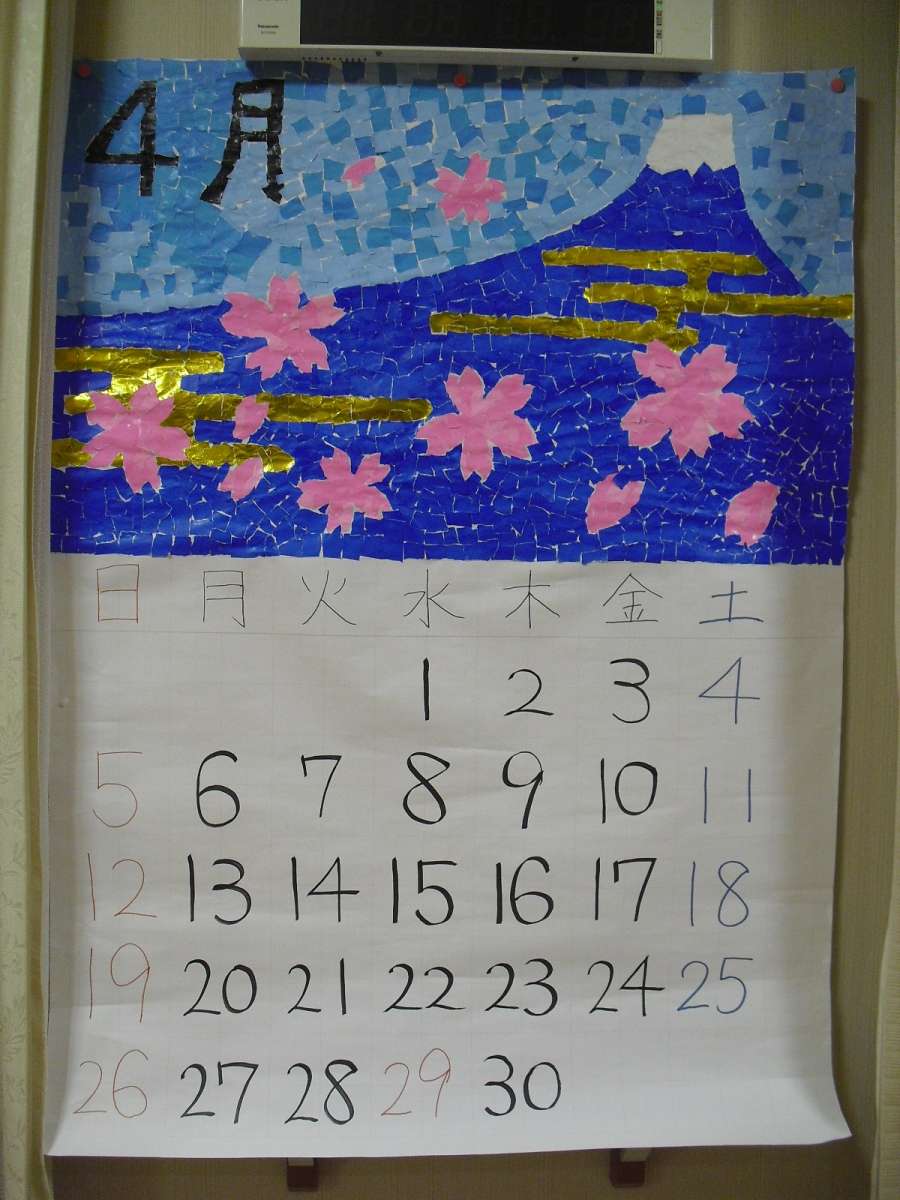 Panasonic
4月
日 月 火 水 木 金 土
1 2 3 4
5 6 7 8 9 10 11
12 13 14 15 16 17 18
19 20 21 22 23 24 25
26 27 28 29 30